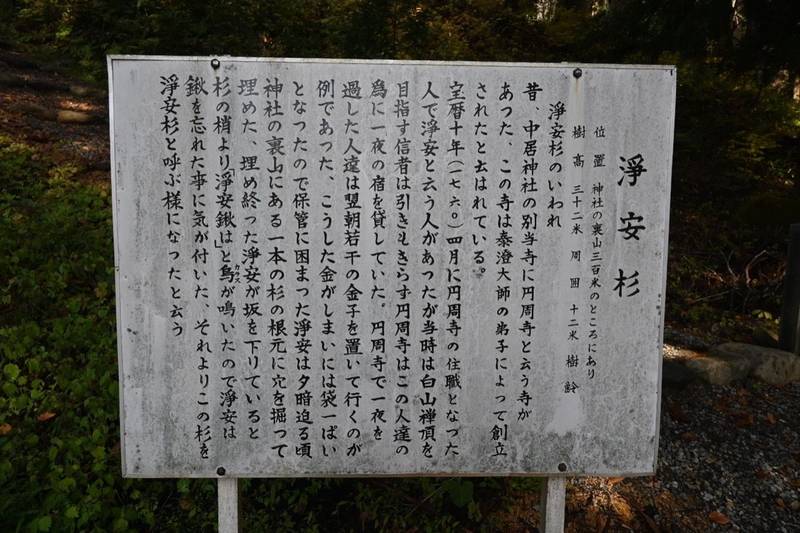 淨安杉
位置 神社の裏山三百米のところにあり
樹高 三十二米 周囲 十二米 樹齢
淨安杉のいわれ
昔、中居神社の別当寺に円周寺と云う寺が
あつた、この寺は泰澄大師の弟子によって創立
されたと云はれている。
宝暦十年(一七六〇)四月に円周寺の住職となった
人で淨安と云う人があったが当時は白山禅頂を
目指す信者は引きもきらず円周寺はこの人達の
爲に一夜の宿を貸していた。円周寺で一夜を
過した人達は翌朝若干の金子を置いて行くのが
例であった、こうした金がしまいには袋一ぱい
となったので保管に困まった淨安は夕暗迫る頃
神社の裏山にある一本の杉の根元に穴を掘って
埋めた、埋め終った淨安が坂を下りていると
杉の梢より「淨安鍬は」と烏が鳴いたので淨安は
鍬を忘れた事に気が付いた、それよりこの杉を
淨安杉と呼ぶ様になったと云う